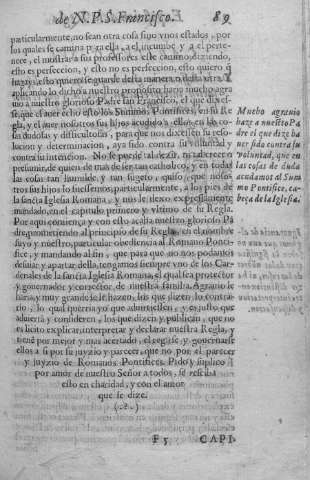 de N. P. S. Francisco. 89
particularmente, no sean otra cosa sino vnos estados, por
los quales se camina para ella, a el incumbe y a el perte-
nece, el mostrar a sus professores este camino diziendo,
esto es perfeccion, y esto no es perfeccion, esto quiero q̃
hagays, esto quiero se guarde desta manera, o de la otra. Y
aplicando lo dicho a nuestro proposito hazē mucho agra
uio a nuestro glorioso Padre san Francisco, el que dixes-
se que el auer echo esto los Summos Pontifices, en su Re
gla, y el auer nosotros sus hijos acudido a ellos en las co
sas dudosas y dificultosas, para que nos diessen su reso-
lucion y determinacion, aya sido contra su voluntad y
contra su intencion. No se puede tal dezir, ni tal creer ni
presumir, de quien de mas de ser tan catholico, y en todas
las cosas tan humilde y tan sugeto, quiso que noso-
tros sus hijos lo fuessemos, particularmente, a los pies de
la sancta Iglesia Romana, y nos lo dexo expressamente
mandado, en el capitulo primero y vltimo de su Regla.
Por aqui comiença, y con esto acaba nuestro glorioso Pa
dre, prometiendo al principio de su Regla, en el nombre
suyo y nuestro, particular obediencia al Romano Ponti-
fice, y mandando al fin, que para que no nos podamos
desuiar y apartar della, tengamos siempre vno de los Car-
denales de la sancta Iglesia Romana, el qual sea protector
y gouernador y corrector de nuestra familia. Agrauio le
haria, y muy grande, le hazen, los que dizen lo contra-
rio, lo qual querria yo que aduirtiessen, y es justo que
aduiertā y consideren, los que dizen y publican, que no
es licito explicar, interpretar y declarar nuestra Regla, y
tienē por mejor y mas acertado, el regirse y gouernarse
ellos a si por su juyzio y parecer, que no por el parecer
y juyzio de Romanos Pontifices. Pido y suplico
por amor de nuestro Señor a todos, se resciba
esto en charidad, y con el amor
que se dize.
Mucho agrauio
haze a nuestro Pa
dre el que dize ha
uer sido contra su
voluntad, que en
las cosas de duda
acudamos al Sum
mo Pontifice, ca-
beça de la Iglesia.
F 5 CAPI